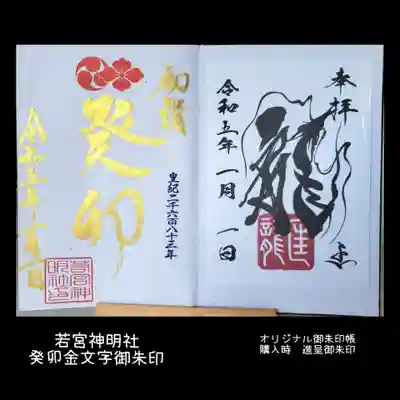 奉拝
龍
令和五年一月一日
初詣
癸卯
皇紀二千六百八十三年
若宮神明社
若宮神明社
癸卯金文字御朱印
オリジナル御朱印帳
購入時 進呈御朱印